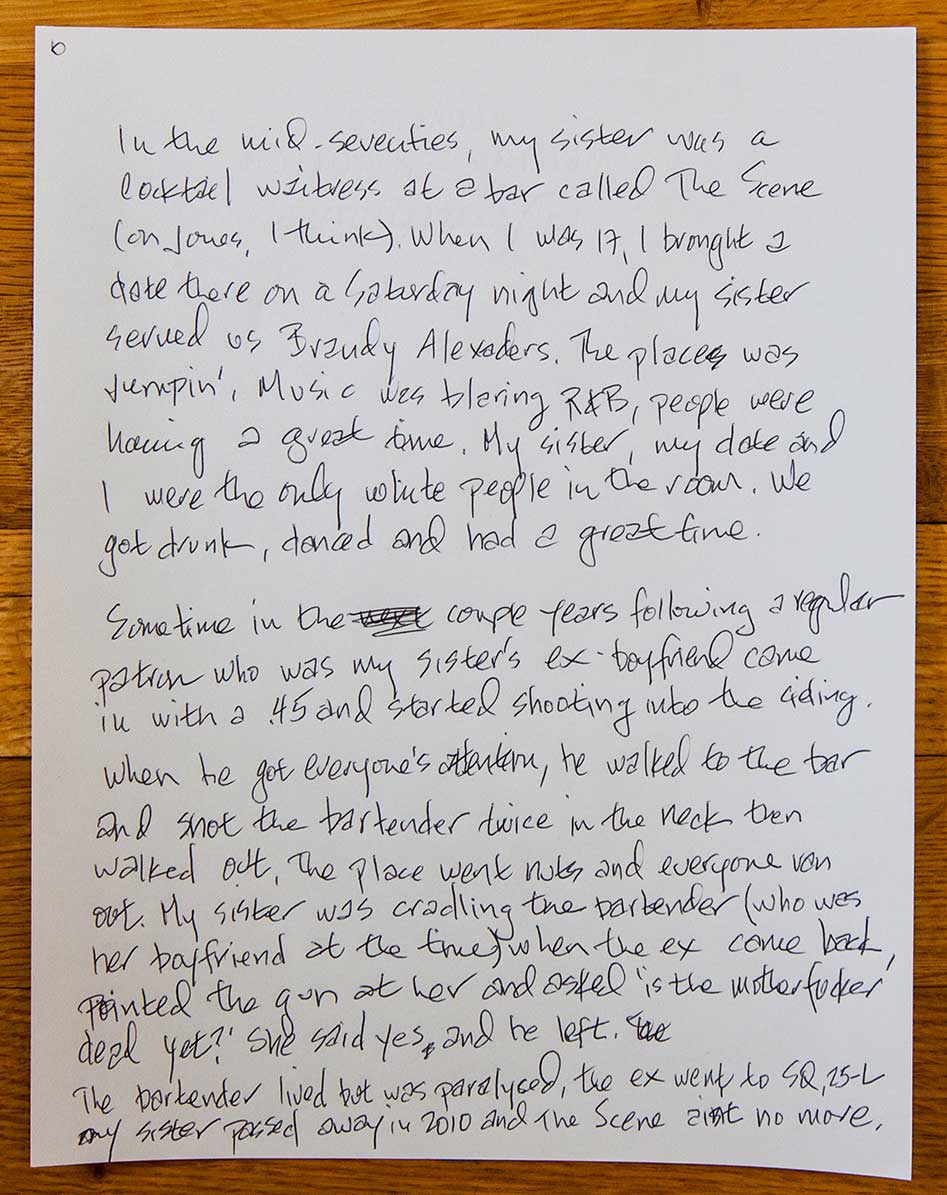 6
In the mid-seventies, my sister was a
cocktail waitress at a bar called The Scene
(on Jones, I think). When I was 17, I brought a
date there on a Saturday night and my sister
served us Brandy Alexaders. The places was
jumpin'. Music was blaring R&B, people were
having a great time. My sister, my date and
I were the only white people in the room. We
got drunk, danced and had a great time.
Sometime in the couple years following a regular
patron who was my sister's ex-boyfriend came
in with a .45 and started shooting into the ciding.
When he got everyone's attention, he walked to the bar
and shot the bartender twice in the neck then
walked out. The place went nuts and everyone ran
out. My sister was cradling the bartender (who was
her boyfriend at the time) when the ex come back,
pointed the gun at her and asked 'is the motherfucker
dead yet?' She said yes, and he left.
The bartender lived but was paralysed, the ex went to SQ, 25-L
my sister passed away in 2010 and The Scene aint no more.